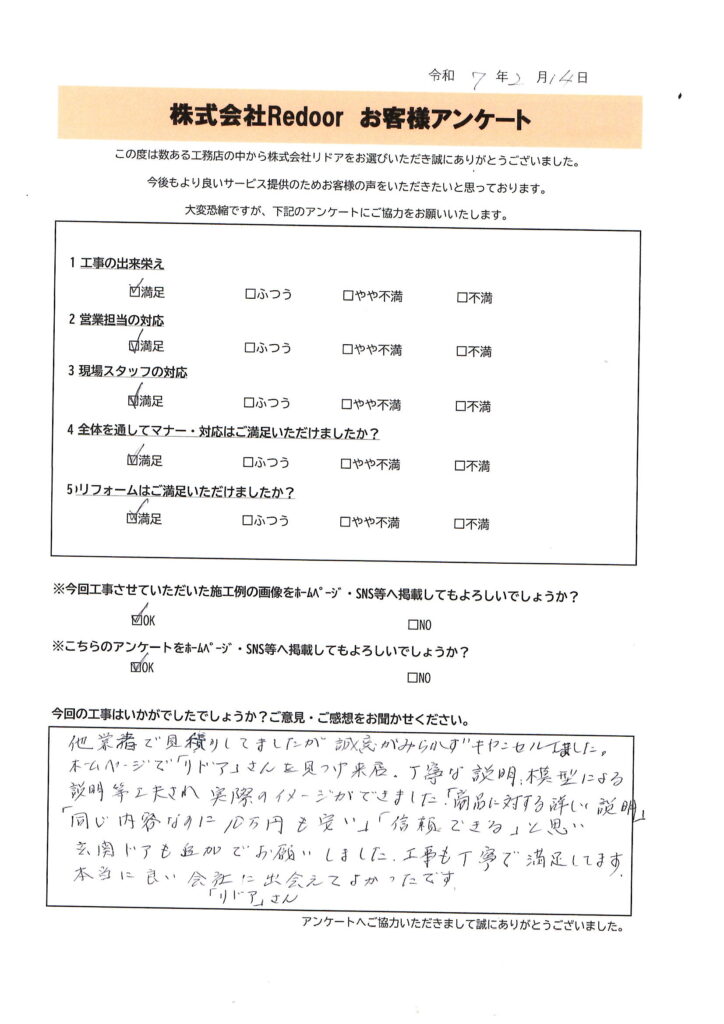 令和 7 年 2 月 14 日
株式会社Redoor お客様アンケート
この度は数ある工務店の中から株式会社リドアをお選びいただき誠にありがとうございました。
今後もより良いサービス提供のためお客様の声をいただきたいと思っております。
大変恐縮ですが、下記のアンケートにご協力をお願いいたします。
1 工事の出来栄え
☑満足 □ふつう □やや不満 □不満
2 営業担当の対応
☑満足 □ふつう □やや不満 □不満
3 現場スタッフの対応
☑満足 □ふつう □やや不満 □不満
4 全体を通してマナー・対応はご満足いただけましたか？
☑満足 □ふつう □やや不満 □不満
5 リフォームはご満足いただけましたか？
☑満足 □ふつう □やや不満 □不満
※今回工事させていただいた施工例の画像をﾎｰﾑﾍﾟｰｼﾞ・SNS等へ掲載してもよろしいでしょうか？
☑OK □NO
※こちらのアンケートをﾎｰﾑﾍﾟｰｼﾞ・SNS等へ掲載してもよろしいでしょうか？
☑OK □NO
今回の工事はいかがでしたでしょうか？ご意見・ご感想をお聞かせください。
他業者で見積りしてましたが誠意がみられずキャンセルしました。
ホームページで「リドア」さんを見つけ来店。丁寧な説明、模型による
説明等工夫され実際のイメージができました。「商品に対する詳しい説明」
「同じ内容なのに10万円も安い」「信頼できる」と思い
玄関ドアも追加でお願いしました。工事も丁寧で満足してます。
本当に良い会社に出会えてよかったです。
「リドア」さん
アンケートへご協力いただきまして誠にありがとうございました。